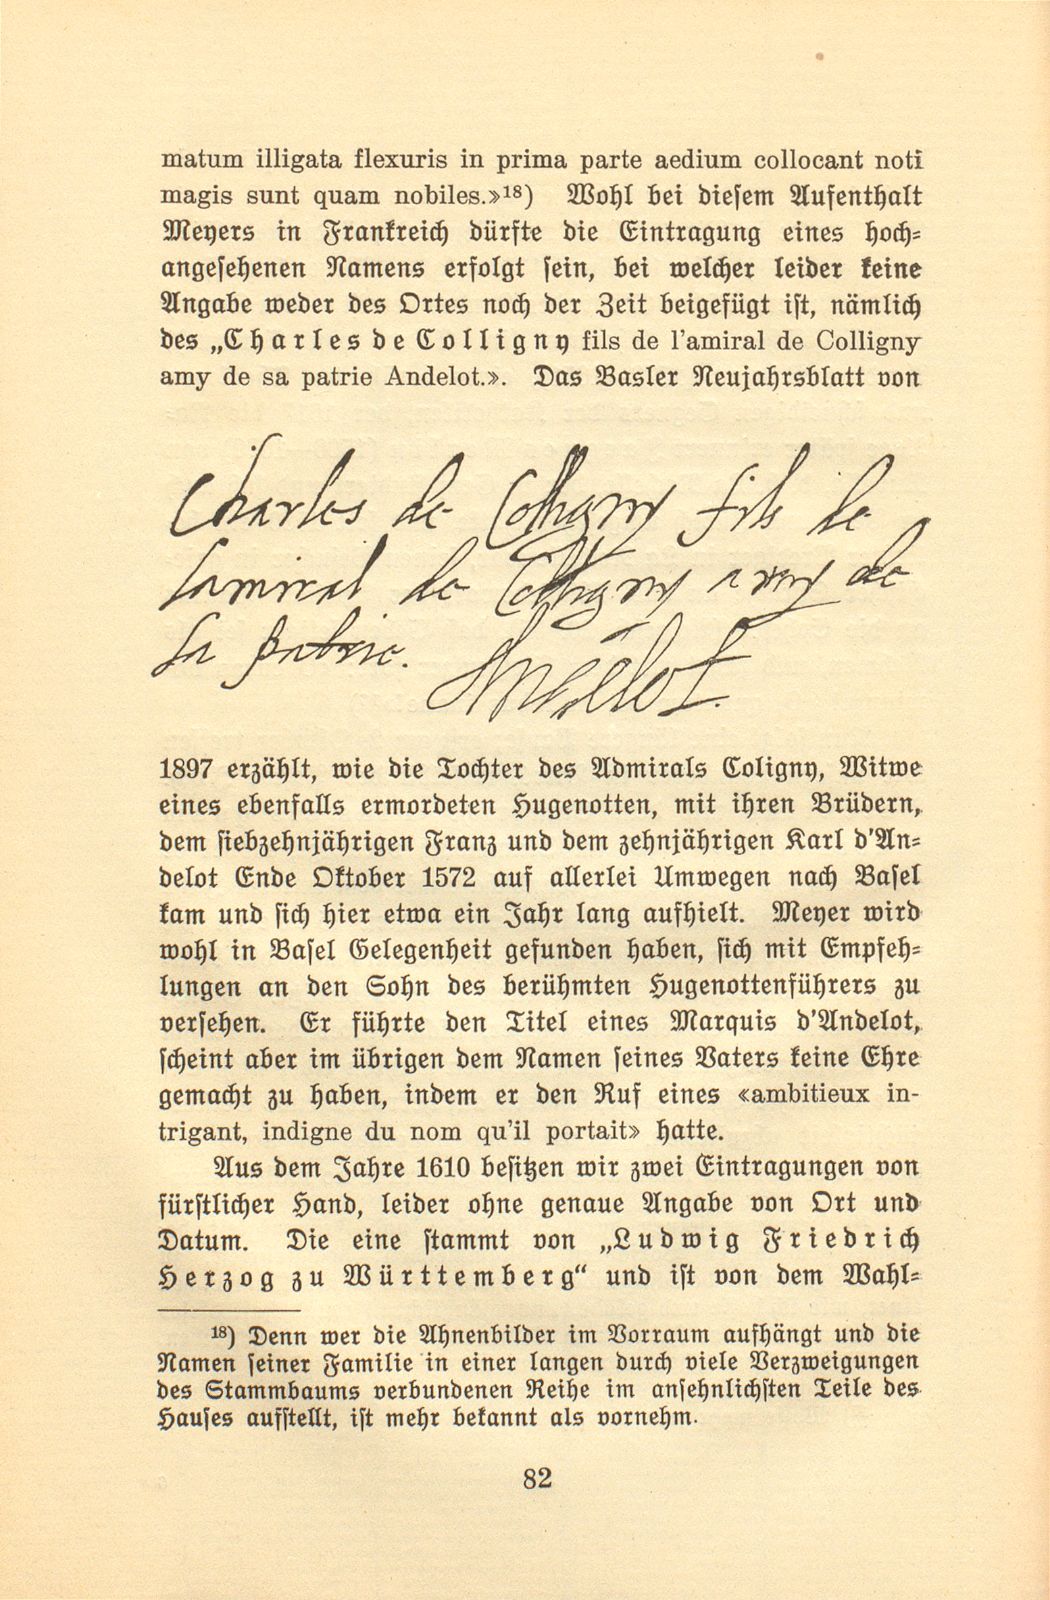 matum illigata flexuris in prima parte aedium collocant noti
magis sunt quam nobiles.»¹⁸) Wohl bei diesem Aufenthalt
Meyers in Frankreich dürfte die Eintragung eines hoch-
angesehenen Namens erfolgt sein, bei welcher leider keine
Angabe weder des Ortes noch der Zeit beigefügt ist, nämlich
des „Charles de Colligny fils de l'amiral de Colligny
amy de sa patrie Andelot.». Das Basler Neujahrsblatt von
Charles de Colligny fils de
lamiral de Colligny amy de
sa patrie. Andelot.
1897 erzählt, wie die Tochter des Admirals Coligny, Witwe
eines ebenfalls ermordeten Hugenotten, mit ihren Brüdern,
dem siebzehnjährigen Franz und dem zehnjährigen Karl d'An-
delot Ende Oktober 1572 auf allerlei Umwegen nach Basel
kam und sich hier etwa ein Jahr lang aufhielt. Meyer wird
wohl in Basel Gelegenheit gefunden haben, sich mit Empfeh-
lungen an den Sohn des berühmten Hugenottenführers zu
versehen. Er führte den Titel eines Marquis d'Andelot,
scheint aber im übrigen dem Namen seines Vaters keine Ehre
gemacht zu haben, indem er den Ruf eines «ambitieux in-
trigant, indigne du nom qu'il portait» hatte.
Aus dem Jahre 1610 besitzen wir zwei Eintragungen von
fürstlicher Hand, leider ohne genaue Angabe von Ort und
Datum. Die eine stammt von „Ludwig Friedrich
Herzog zu Württemberg“ und ist von dem Wahl-
¹⁸) Denn wer die Ahnenbilder im Vorraum aufhängt und die
Namen seiner Familie in einer langen durch viele Verzweigungen
des Stammbaums verbundenen Reihe im ansehnlichsten Teile des
Hauses aufstellt, ist mehr bekannt als vornehm.
82